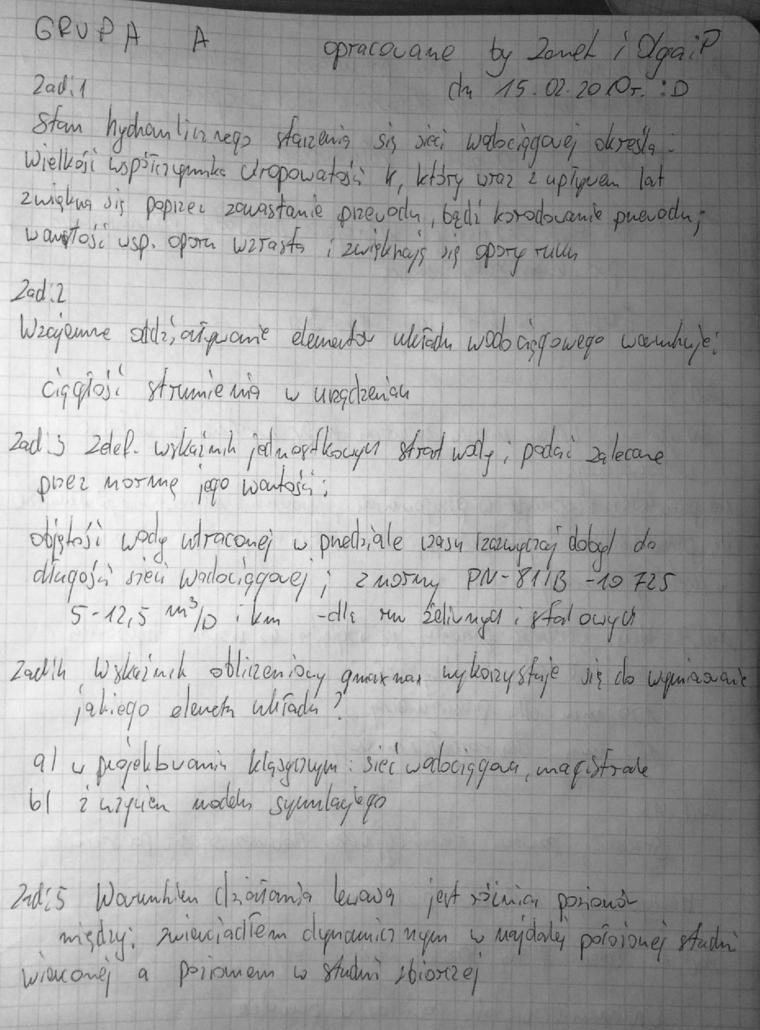 GRUPA A
opracowane by Zonek i Olga:P
dn 15.02.2010r. :D
Zad.1
Stan hydraulicznego starzenia się sieci wodociągowej określa:
wielkość współczynnika chropowatości k, który wraz z upływem lat
zwiększa się poprzez zarastanie przewodu, bądź korodowanie przewodu;
wartość wsp. oporu wzrasta i zwiększają się opory ruchu
Zad.2
Wzajemne oddziaływanie elementów układu wodociągowego warunkuje:
ciągłość strumienia w urządzeniach
Zad.3 Zdef. wskaźnik jednostkowych strat wody i podać zalecane
przez normę jego wartości:
objętość wody utraconej w przedziale czasu (zazwyczaj doby) do
długości sieci wodociągowej; z normy PN-81/B-10725
5-12,5 m³/D i km - dla rur żeliwnych i stalowych
Zad.4 Wskaźnik obliczeniowy qmaxmax wykorzystuje się do wymiarowanie
jakiego elementu układu?
a) w projektowaniu klasycznym: sieć wodociągowa, magistrale
b) z użyciem modelu symulacyjnego
Zad.5 Warunkiem działania lewara jest różnica poziomów
między: zwierciadłem dynamicznym w najdalej położonej studni
wierconej a poziomem w studni zbiorczej